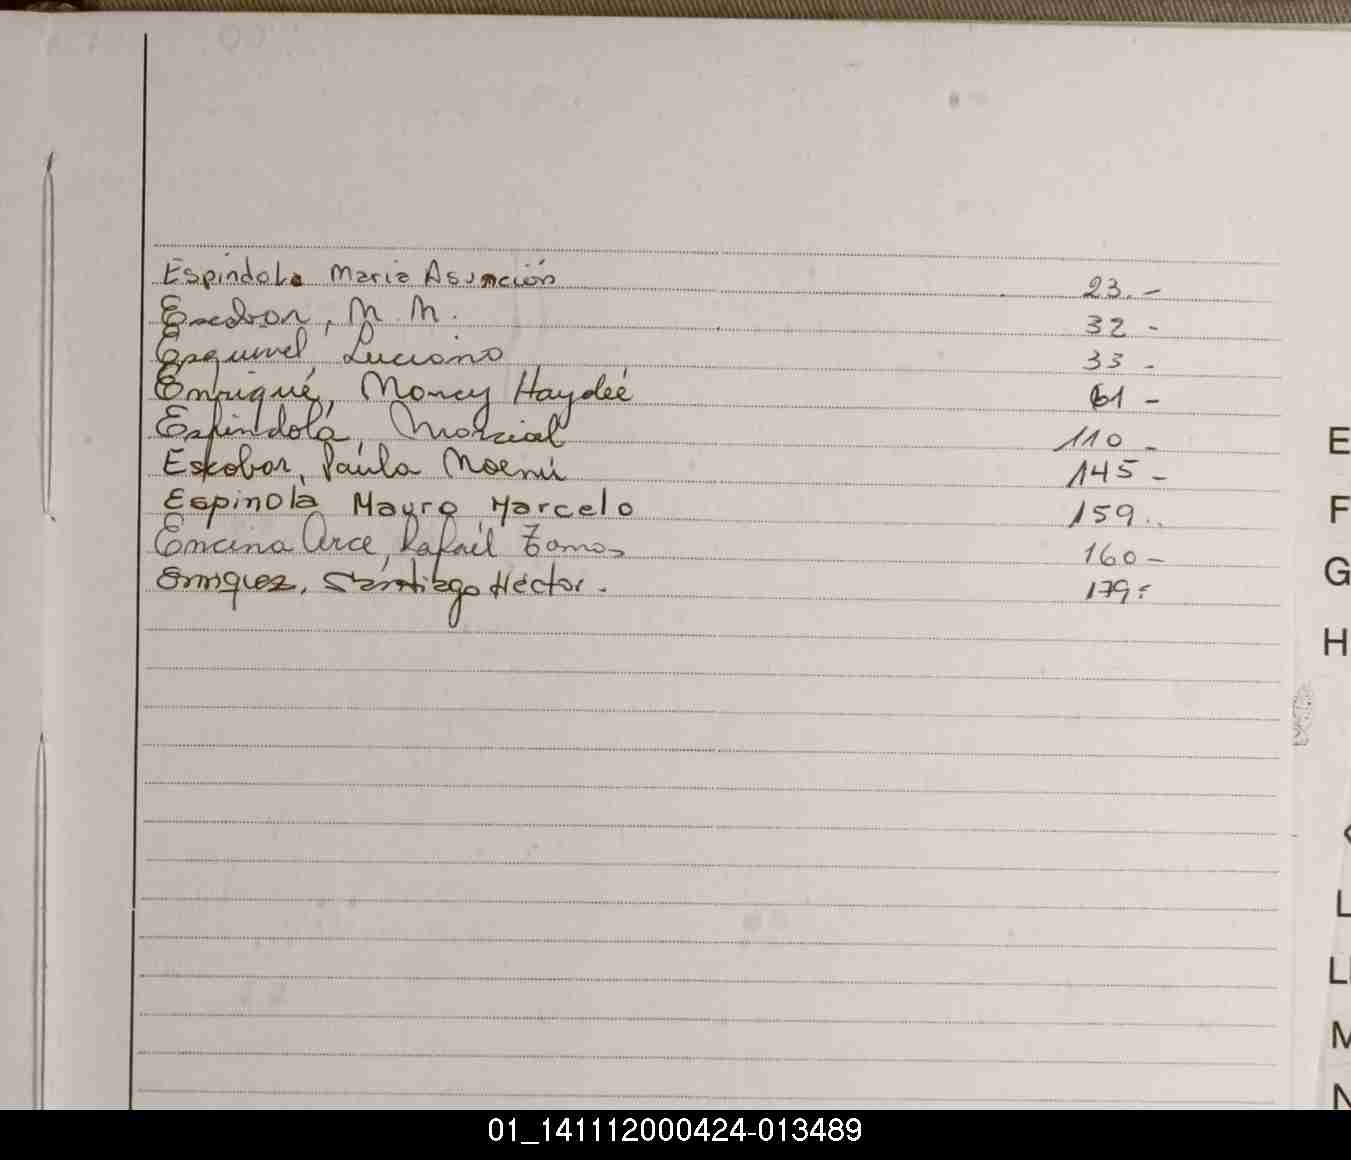 Espindola Maria Asunción 23.-
Escobar, M. M. 32 -
Esquivel Luciano 33 -
Enriqué, Nancy Haydeé 61 -
Espindola, Marcial 110 -
Escobar, Paula Noemí 145 -
Espinola Mauro Marcelo 159..
Encina Arce, Rafael 160 -
Enriquez, Santiago Héctor. 179.-
E
F
G
H
L
LL
M
N
01_141112000424-013489